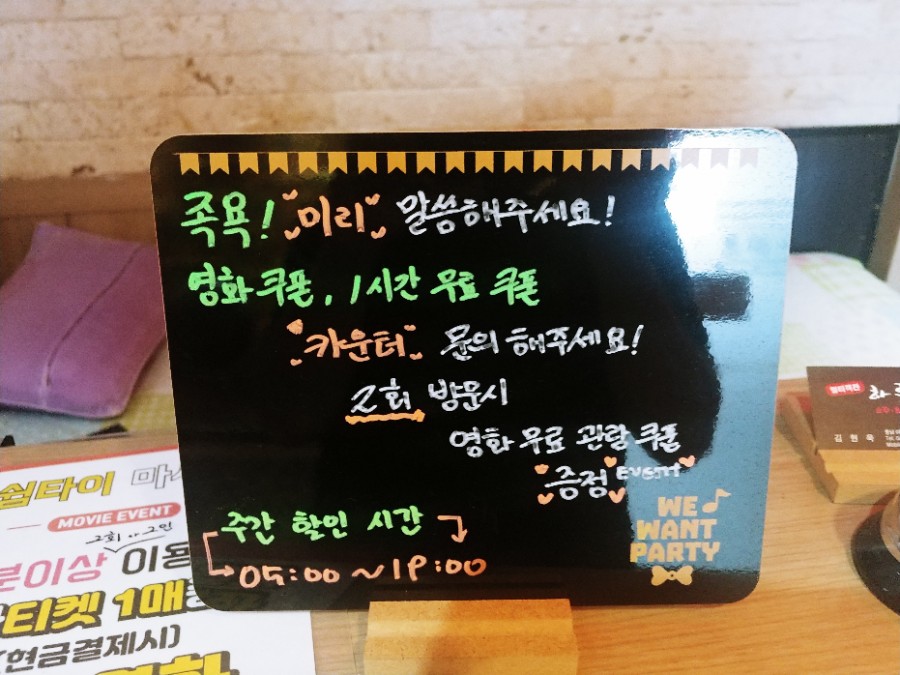 족욕! 미리 말씀해주세요!
영화쿠폰, 1시간 무료 쿠폰
카운터 문의 해주세요!
2회 방문시
영화 무료 관람 쿠폰
증정 EVENT
주간 할인 시간
05:00 ~ 19:00
WE
WANT
PARTY
쉽타이 마사
MOVIE EVENT
분이상 이용
티켓 1매
(현금결제시)
영화
김원욱